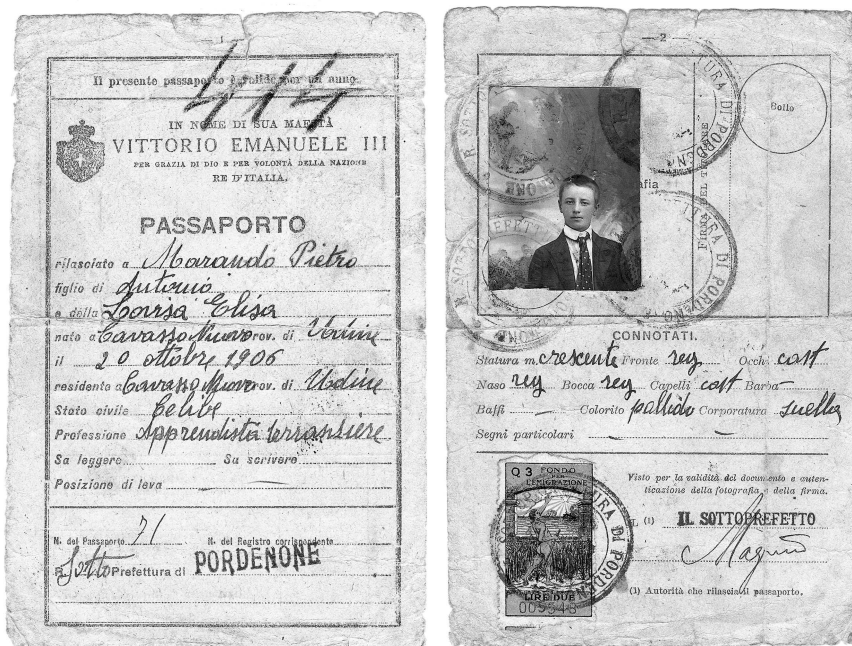 — 1 —
Il presente passaporto è valido per un anno.
414
IN NOME DI SUA MAESTÀ
VITTORIO EMANUELE III
PER GRAZIA DI DIO E PER VOLONTÀ DELLA NAZIONE
RE D'ITALIA.
PASSAPORTO
rilasciato a Marando Pietro
figlio di Antonio
e della Lovisa Elisa
nato a Cavasso Nuovo prov. di Udine
il 20 ottobre 1906
residente a Cavasso Nuovo prov. di Udine
Stato civile Celibe
Professione Apprendista terrazziere
Sa leggere Sa scrivere
Posizione di leva —
N. del Passaporto 71 N. del Registro corrispondente
R. Sotto Prefettura di PORDENONE
— 2 —
Bollo
FIRMA DEL TITOLARE
R. SOTTOPREFETTURA DI PORDENONE
CONNOTATI.
Statura m. crescente Fronte reg Occhi cast
Naso reg Bocca reg Capelli cast Barba —
Baffi — Colorito pallido Corporatura snella
Segni particolari —
Q 3 FONDO
PER
L'EMIGRAZIONE
LIRE DUE
Visto per la validità del documento e auten-
ticazione della fotografia e della firma.
IL (1) IL SOTTOPREFETTO
(1) Autorità che rilascia il passaporto.